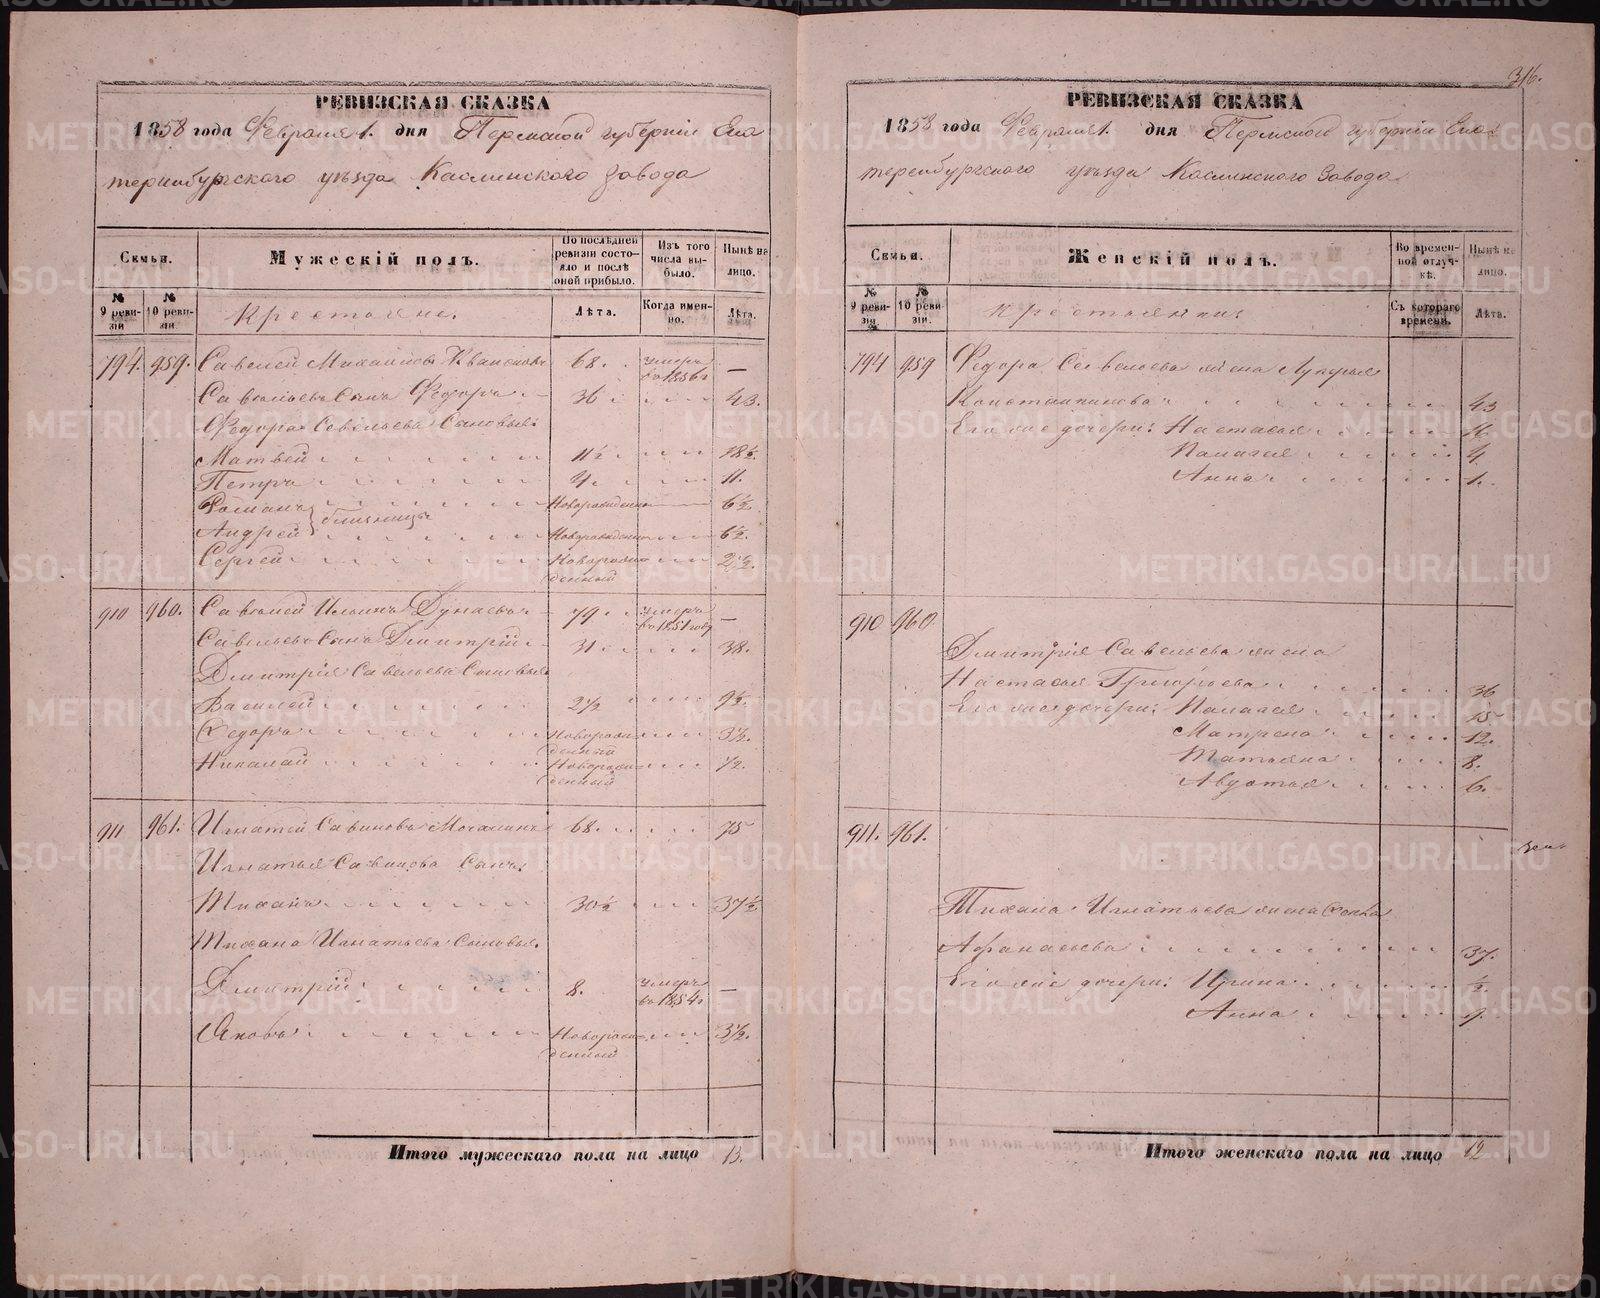 316.
РЕВИЗСКАЯ СКАЗКА
1858 года Февраля 1. дня Пермской губернiи Ека
теринбургского уѣзда Каслинского Завода
Семьи.
Мужескій полъ.
По послѣдней ревизіи состояло и послѣ оной прибыло.
Изъ того числа выбыло.
Нынѣ на лицо.
№ 9 ревизіи
№ 10 ревизіи.
Крестьяне.
Лѣта.
Когда именно.
Лѣта.
794. 959. Савелей Михайловъ 68. умеръ въ 1856 г —
Савельевъ Сынъ Федоръ 36 43.
Федора Савельева Сыновья:
Матвей 11½ 18½.
Петръ 4. 11.
Романъ близнецы Новорожденный 6½
Андрей Новорожденный 6½.
Сергей Новорожденный 2½.
910 960. Савелей Ильинъ Дунаевъ 79. умеръ въ 1851 году —
Савельевъ Сынъ Дмитрій 31 38.
Дмитрія Савельева Сыновья
Василей 2½ 9½.
Федоръ Новорожденный 3½.
Николай Новорожденный ½.
911 961. Игнатей Савиновъ Мочалинъ 68. 75
Игнатья Савинова Сынъ:
Тиханъ 30½ 37½
Тихана Игнатьева Сыновья.
Дмитрій 8. умеръ въ 1854 г —
Яковъ Новорожденный 3½.
Итого мужескаго пола на лицо 13.
РЕВИЗСКАЯ СКАЗКА
1858 года Февраля 1. дня Пермской губернiи Ека
теренбургского уѣзда Каслинского Завода
Семьи.
Женскій полъ.
Во временной отлучкѣ.
Нынѣ на лицо.
№ 9 ревизіи.
№ 10 ревизіи.
Крестьянки:
Съ котораго времени.
Лѣта.
794 959 Федора Савельева жена Лукерья
Константинова 43
Его же дочери: Настасья 16.
Палагея 4
Анна 1.
910 960
Дмитрія Савельева жена
Настасья Григорьева 36
Его же дочери: Палагея 15
Матрена 12.
Татьяна 8.
Авдотья 6.
911. 961.
Тихана Игнатьева жена
Афанасьева 37.
Его же дочери: Ирина ½.
Анна
Итого женскаго пола на лицо 12
METRIKI.GASO-URAL.RU